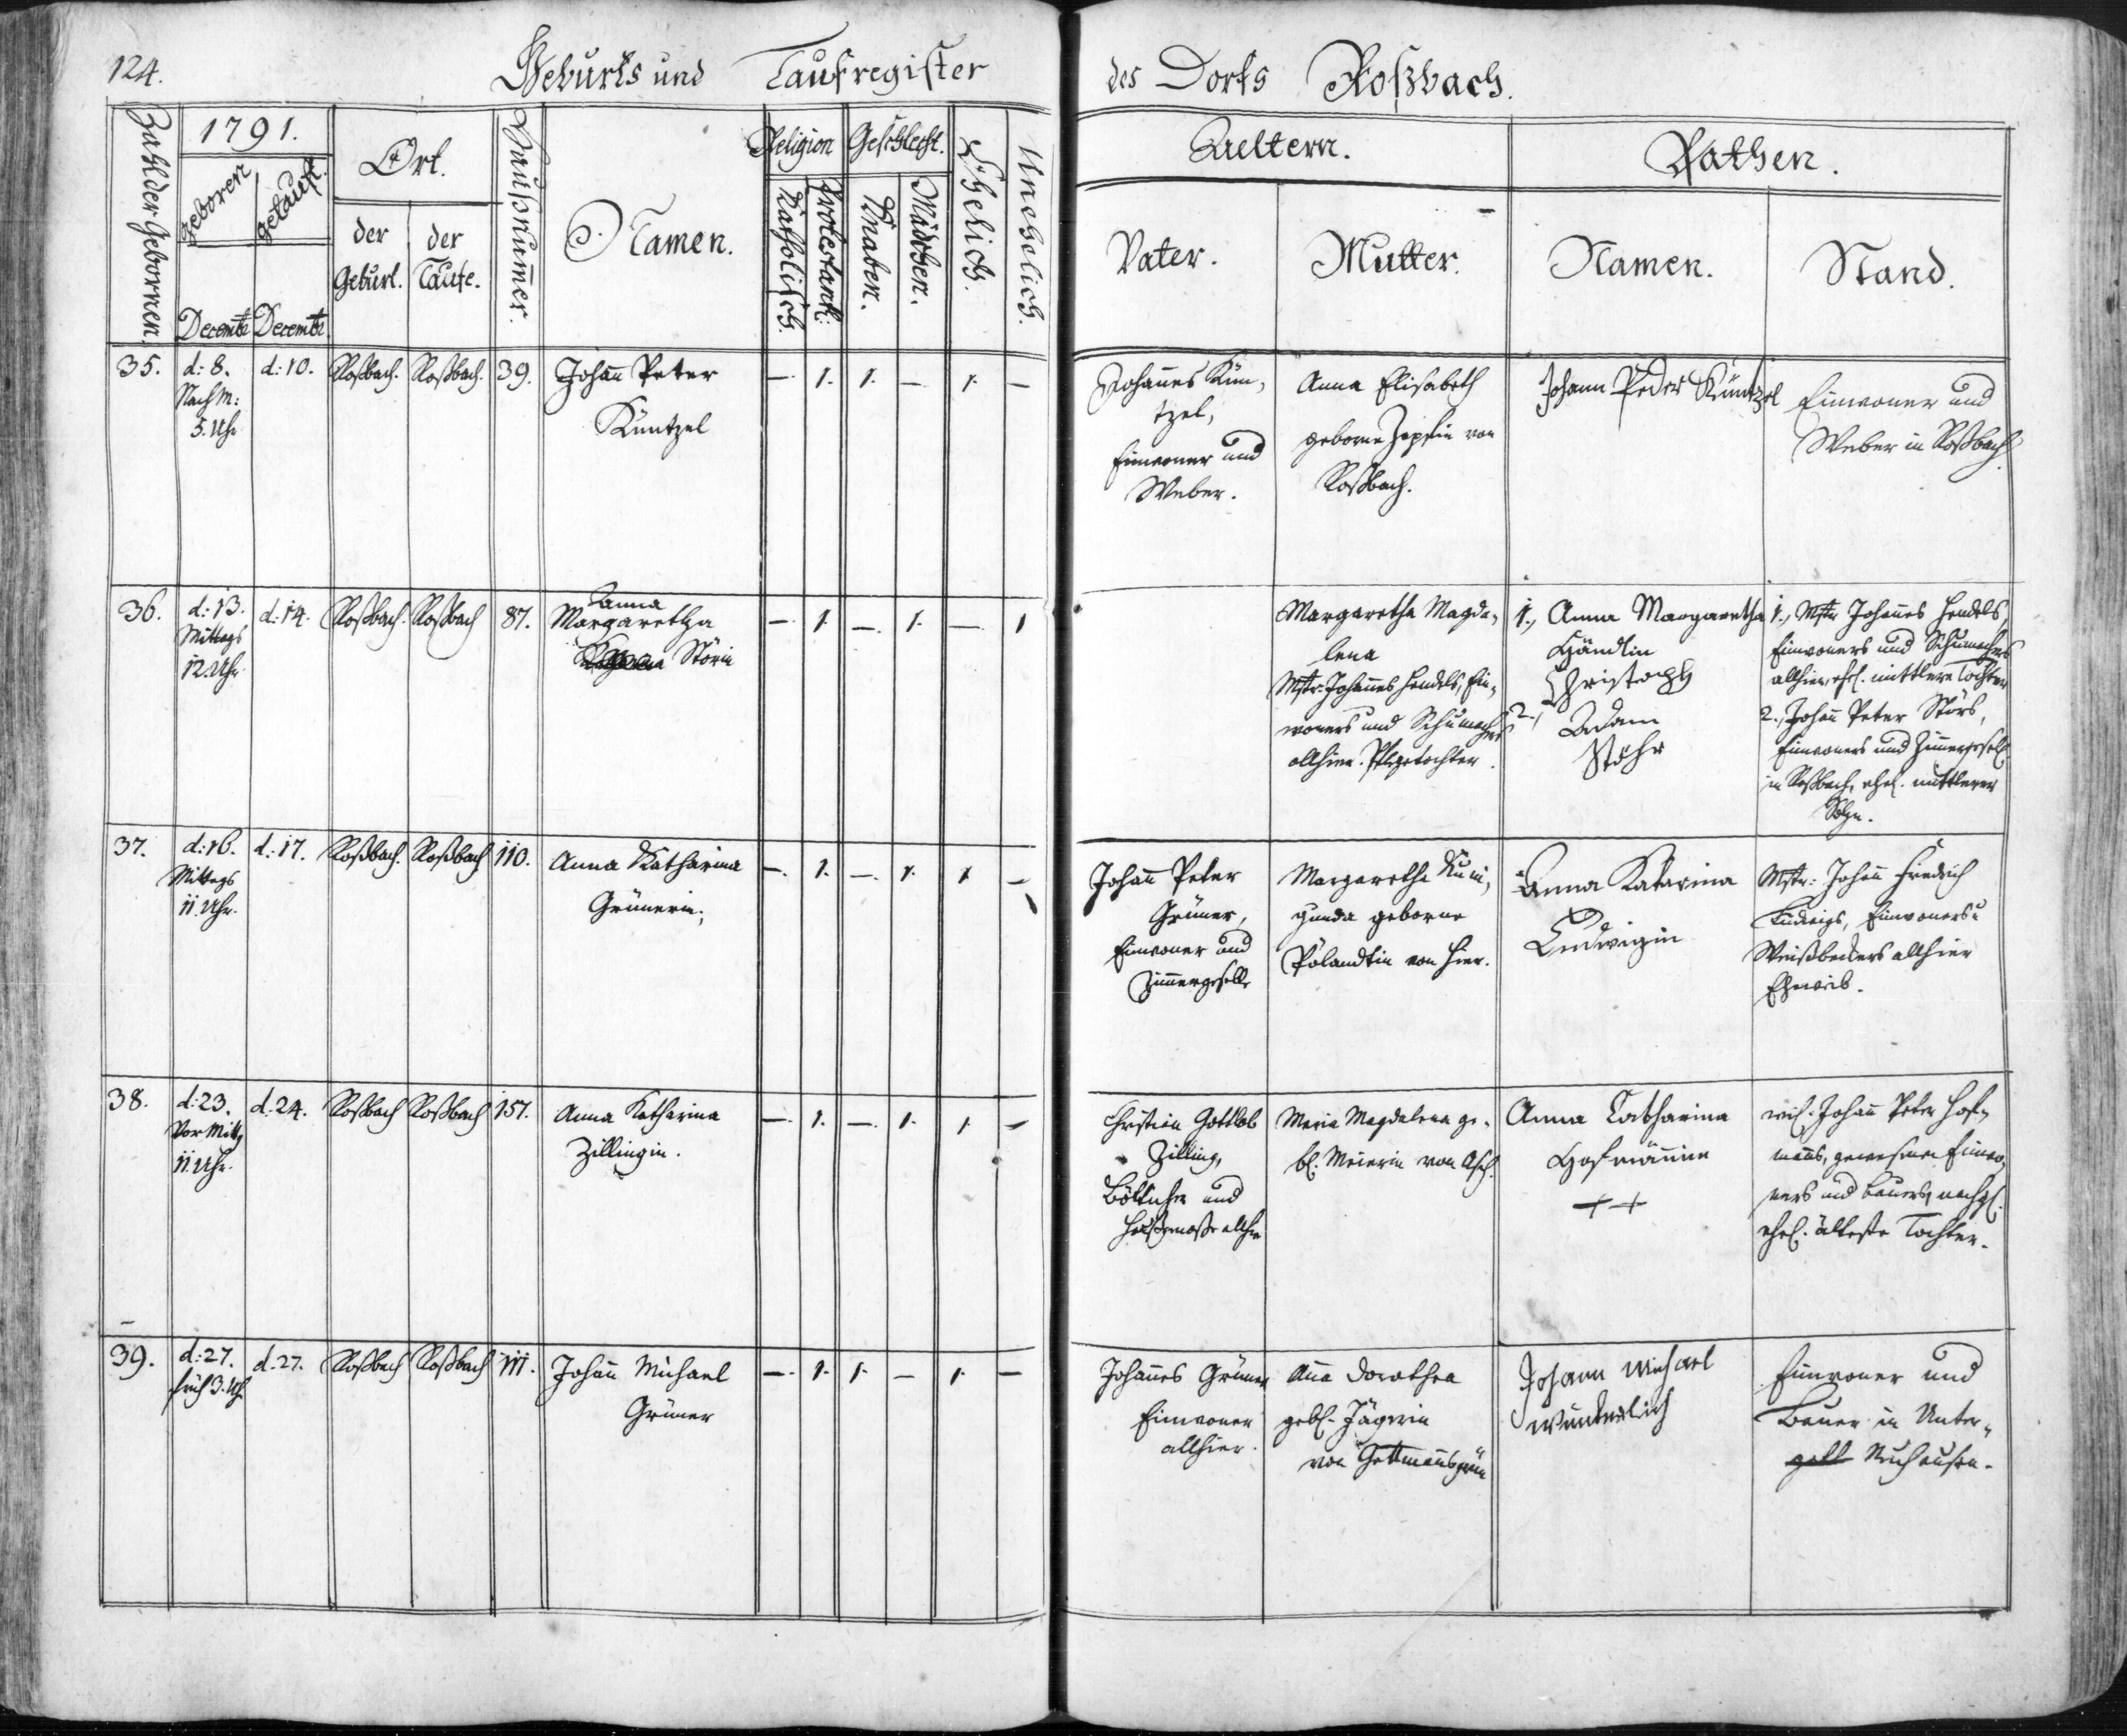 124.
Geburts und Taufregister des Dorfs Roßbach.
Zahl der Gebornen.
1791.
geboren
getauft
Decembr
Decembr
Ort.
der Geburt.
der Taufe.
Hausnumer.
Namen.
Religion
Katholisch.
Protestant:
Geschlecht.
Knaben.
Mädchen.
Ehelich.
Unehelich.
Aeltern.
Vater.
Mutter.
Pathen.
Namen.
Stand.
35.
d: 8.
NachM:
5. Uhr
d: 10.
Roßbach.
Roßbach.
39.
Johan̄ Peter
Küntzel
— 1. 1. — 1. —
Johañes Kün-
tzel,
Einwoner und
Weber.
Anna Elisabeth
geborne von
Roßbach.
Johann Peder Küntzel
Einwoner und
Weber in Roßbach
36.
d: 13.
Mittags
12. Uhr
d: 14.
Roßbach.
Roßbach
87.
Anna
Margaretha
Störin
— 1. — 1. — 1
Margaretha Magda-
lena
Mstr. Johañes Hendels, Ein-
woners und Schumachers
allhier. Pflegetochter.
1., Anna Margaretha
Händlin
Christoph
2., Adam
Stöhr
1., Mstr Johañes Hendels,
Einwoners und Schumachers
allhier, ehl. mittlere Tochter
2., Johañ Peter Störs,
Einwoners und Zimergesell
in Roßbach, ehel. mittlerer
Sohn.
37.
d: 16.
Mittags
11. Uhr.
d: 17.
Roßbach.
Roßbach
110.
Anna Katharina
Grünerin.
— 1. — 1. 1 —
Johañ Peter
Grüner,
Einwoner und
Zimergeselle
Margaretha Kuni-
gunda geborne
Pölandtin von hier.
Anna Katarina
Ludwigin
Mstr: Johañ Friedrich
Ludwigs, Einwoners u
Weißbeckers allhier
Eheweib.
38.
d: 23.
Vor Mitt
11 Uhr.
d: 24.
Roßbach
Roßbach
157.
Anna Katharina
Zillingin.
— 1. — 1. 1. —
Christian Gottlob
Zilling,
Böttcher und
Haußgenoße allhier
Maria Magdalena ge-
bl. Meierin von Asch.
Anna Catharina
Hofmännin
++
weil. Johañ Peter Hof-
mañs, gewesenen Einwo-
ners und Bauers, nachgl.
ehel. älteste Tochter.
39.
d: 27.
früh 3. Uhr
d. 27.
Roßbach
Roßbach
111.
Johañ Michael
Grüner
— 1. 1. — 1. —
Johañes Grüner
Einwoner
allhier.
Aña Dorothea
gebl. Jägerin
von Gettmañsgrün
Johann Michael
Wunderlich
Einwoner und
Bauer in Unter-
Neuhausen.